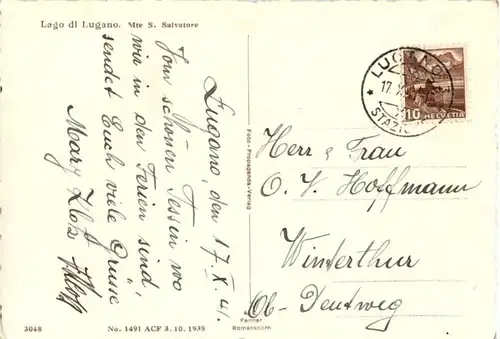 Lago di Lugano. Mte S. Salvatore
Lugano, den 17. X. 41.
Vom schönen Tessin wo
wir in den Ferien sind,
sendet Euch viele Grüsse
Mary Klotz
3048
No. 1491 ACF 3. 10. 1939
Foto - Propaganda - Verlag
Romanshorn
LUGANO
17. X.
STAZIO
10 HELVETIA
Herr & Frau
O. V. Hoffmann
Winterthur
Ob- Deutweg